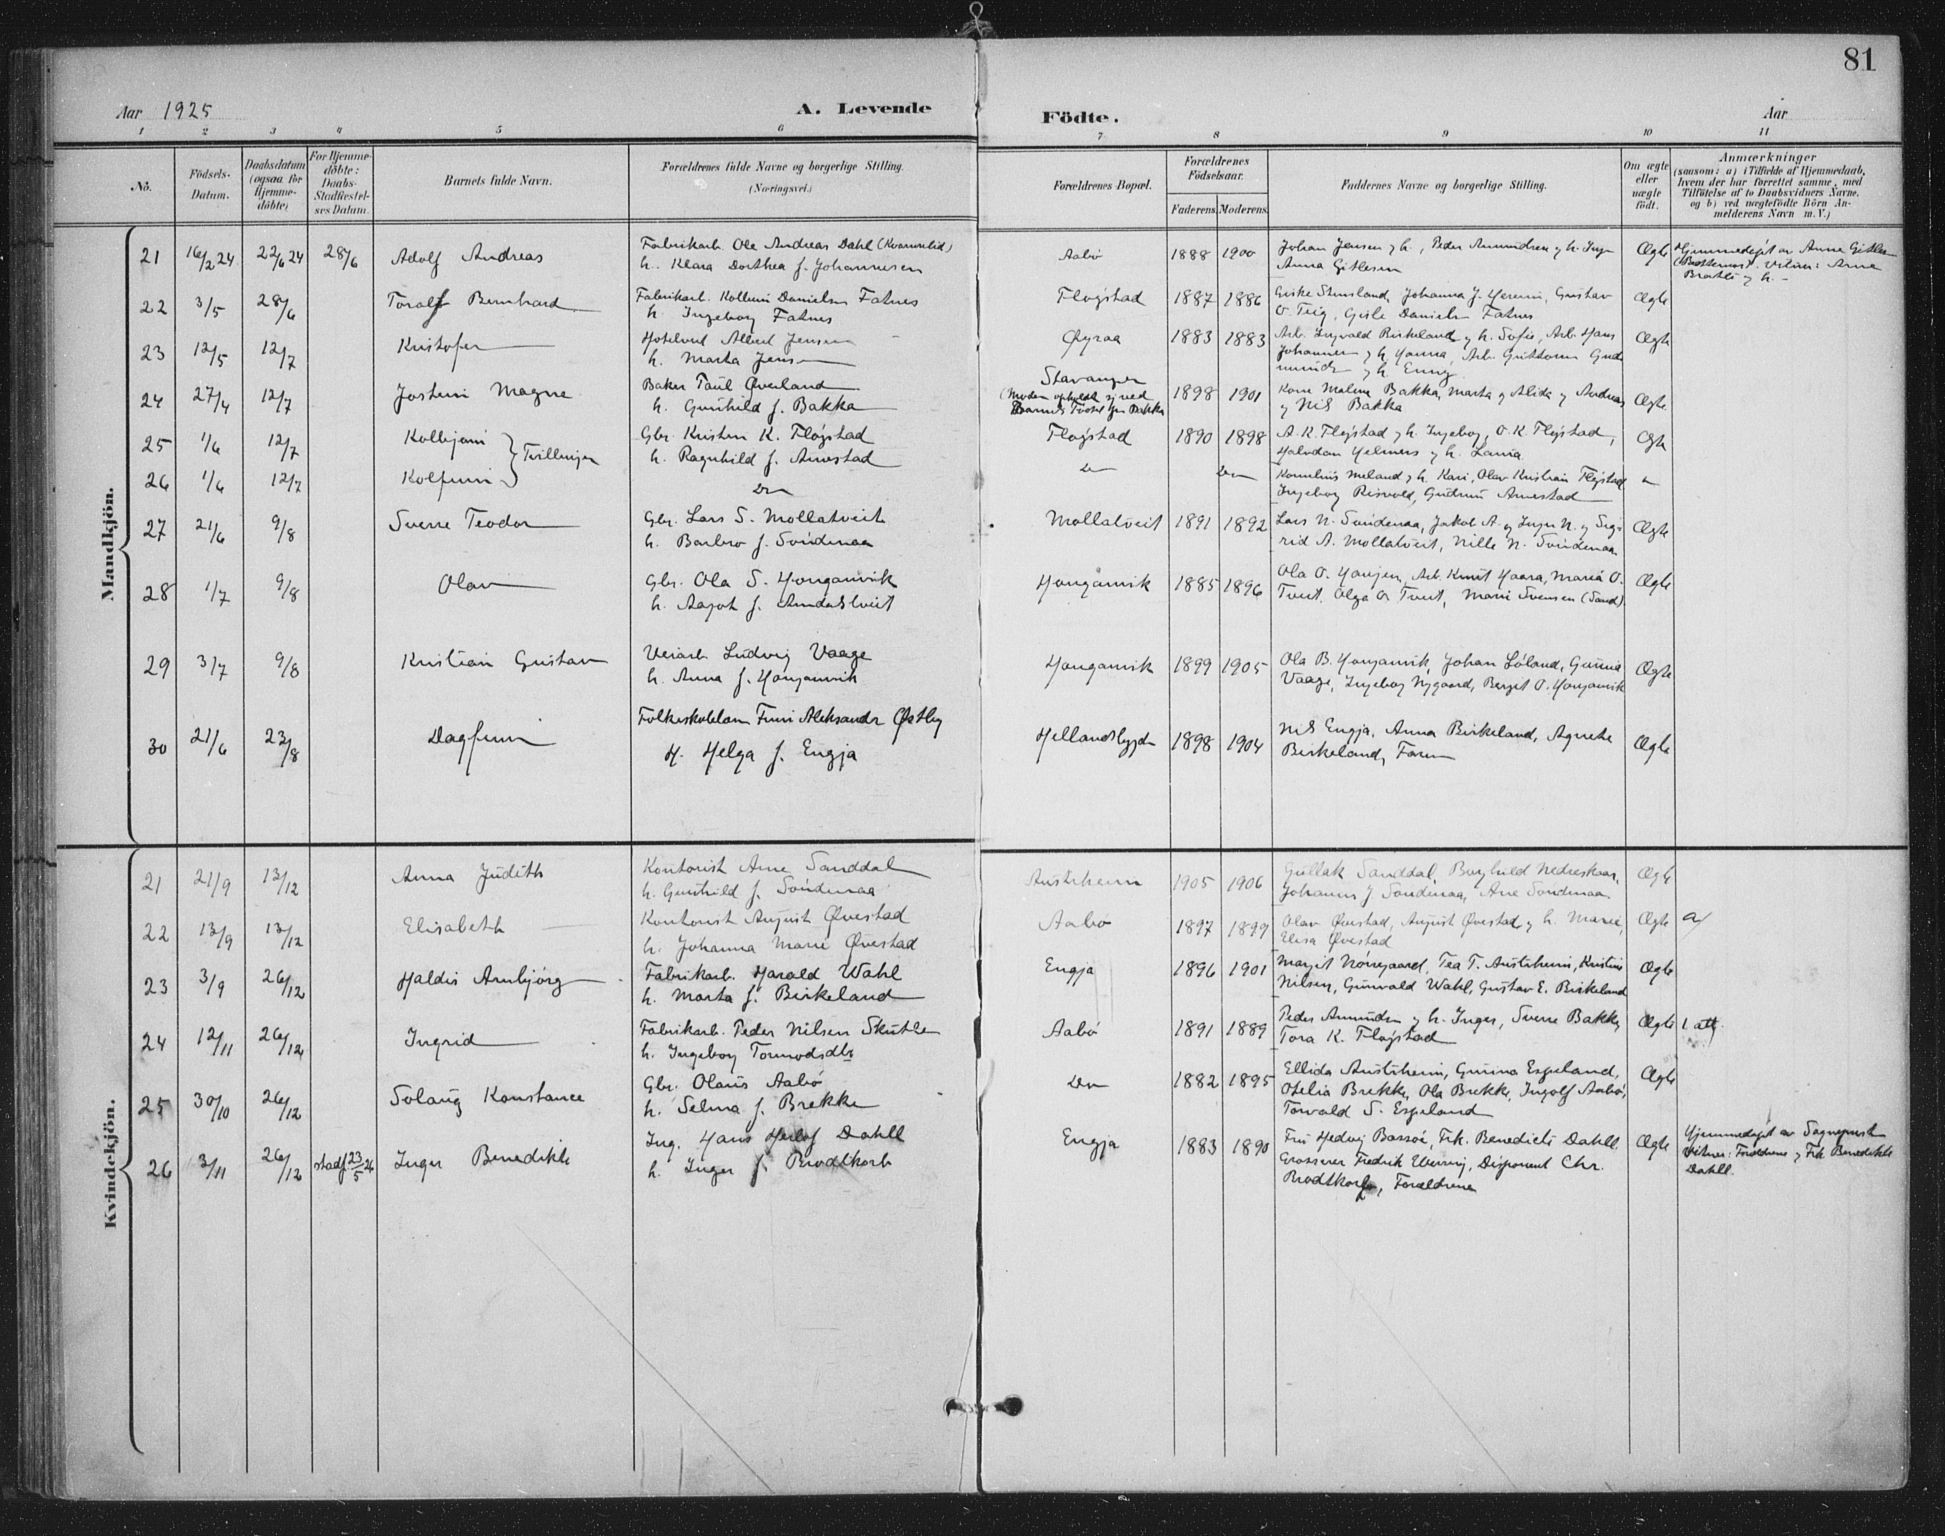 81
Aar 1925
A. Levende
Födte.
Aar
1 2 3 4 5 6 7 8 9 10 11
No.
Födsels-
Datum.
Daabsdatum
(ogsaa for
Hjemme-
döbte)
For Hjemme-
döbte:
Daabs-
Stadfæstel-
ses Datum.
Barnets fulde Navn.
Forældrenes fulde Navne og borgerlige Stilling.
(Næringsvei.)
Forældrenes Bopæl.
Forældrenes
Födselsaar.
Faderens. Moderens.
Faddernes Navne og borgerlige Stilling.
Om ægte
eller
uægte
födt.
Anmærkninger
(saasom: a) i Tilfælde af Hjemmedaab,
hvem der har forrettet samme, med
Tilföielse af to Daabsvidners Navne,
og b) ved uægtefödte Börn An-
melderens Navn m. V.)
Mandkjön.
21 16/2 24 22/6 24 28/6 Adolf Andreas
Fabrikarb. Ole Andreas Dahl (Kvammelid)
h. Klara Dorthea f. Johannesen
Aabø 1888 1900
Johan Jensen og h., Peder Amundsen og h. Inga
Anna Gitlesen
Ægte
Hjemmedøpt av Anna Gitlesen
22 3/5 28/6 Toralf Bernhard
Fabrikarb. Kolbein Danielsen Fatnes
h. Ingeborg Fatnes
Fløgstad 1887 1886
Gustav
O. Teig, Gisle Danielsen Fatnes
Ægte
23 12/5 12/7 Kristofer
Hotelvert Albert Jensen
h. Marta Jensen
Øyraa 1883 1883
Arb. Ingvald Birkeland og h. Sofie, Arb. Hans
Johannesen og h. Hanna, Arb. Guttorm Gud-
og h. Enny
Ægte
24 27/4 12/7 Jostein Magne
Baker Paul Øverland
h. Gunhild f. Bakka
Stavanger
1898 1901
Kone Malene Bakka, Marta og Alida og Andreas
og Nils Bakka
Ægte
25 1/6 12/7 Kolbjørn
Tvillinger
Gbr. Kristen K. Fløgstad
h. Ragnhild f. Amestad
Fløgstad 1890 1898
A. K. Fløgstad og h. Ingeborg, O. K. Fløgstad,
Halvdan Helmers og h. Laura
Ægte
26 1/6 12/7 Kolfinn
Do
Kornelius Meland og h. Kari, Olav Kristian Fløgstad
Ingeborg Risvold, Gudrun Amestad
27 21/6 9/8 Sverre Teodor
Gbr. Lars S. Mollatveit
h. Barbro f. Søndenaa
Mollatveit 1891 1892
Lars N. Søndenaa, Jakob A. og Inger N. og Sig-
rid A. Mollatveit, Nille N. Søndenaa
Ægte
28 1/7 9/8 Olav
Gbr. Ola S. Honganvik
h. Aagot f. Amdalstveit
Honganvik 1885 1896
Ola O. Haugen, Arb. Knut Haara, Maria O.
Tveit, Olga O. Tveit, Marie Svensen (Sand).
Ægte
29 3/7 9/8 Kristian Gustav
Veiarb. Ludvig Vaage
h. Anna f. Honganvik
Honganvik 1899 1905
Ola B. Honganvik, Johan Løland, Gunna
Vaage, Ingeborg Nygaard, Berget O. Honganvik
Ægte
30 21/6 23/8 Dagfinn
Folkeskolelær. Finn Aleksander Østby
H. Helga f. Engja
Hellandsbygd 1898 1904
Nils Engja, Anna Birkeland, Agnete
Birkeland, Faren
Ægte
Kvindekjön.
21 21/9 13/12 Anna Judith
Kontorist Arne Sanddal
h. Gunhild f. Søndenaa
Austrheim 1905 1906
Gullak Sanddal, Borghild Nedreskaar,
Johannes J Søndenaa, Arne Søndenaa
Ægte
22 13/9 13/12 Elisabeth
Kontorist August Øvestad
h. Johanna Marie Øvestad
Aabø 1897 1899
Olav Øvestad, August Øvestad og h. Marie,
Elisa Øvestad
Ægte
a/
23 3/9 26/12 Haldis Arnbjørg
Fabrikarb. Harald Wahl
h. Marta f. Birkeland
Engja 1896 1901
Margit Nørregaard, Tea T. Austrheim, Kristine
Nilsen, Gunvald Wahl, Gustav E. Birkeland
Ægte
24 12/11 26/12 Ingrid
Fabrikarb. Peder Nilsen Skutle
h. Ingeborg Tormodsdtr
Aabø 1891 1889
Peder Amundsen og h. Inger, Sverre Bakke,
Tora K. Fløgstad
Ægte
1 att.
25 30/10 26/12 Solaug Konstance
Gbr. Olaus Aabø
h. Selma f. Brekke
Do 1882 1895
Ellida Austrheim, Gunna Espeland,
Ofelia Brekke, Ola Brekke, Ingolf Aabø,
Torvald S. Espeland
Ægte
26 3/11 26/12 stadf. 23/5 26 Inger Benedikte
Ing. Hans Herlof Dahll
h. Inger f. Brodtkorb
Engja 1883 1890
Fru Hedvig Bassøe, Frk. Benedicte Dahll
Grosserer Fredrik, Disponent Chr.
Brodtkorb, Forældrene
Ægte
Hjemmedøpt av Sogneprest
Vitner: Forældrene og Frk Benedikte
Dahll.